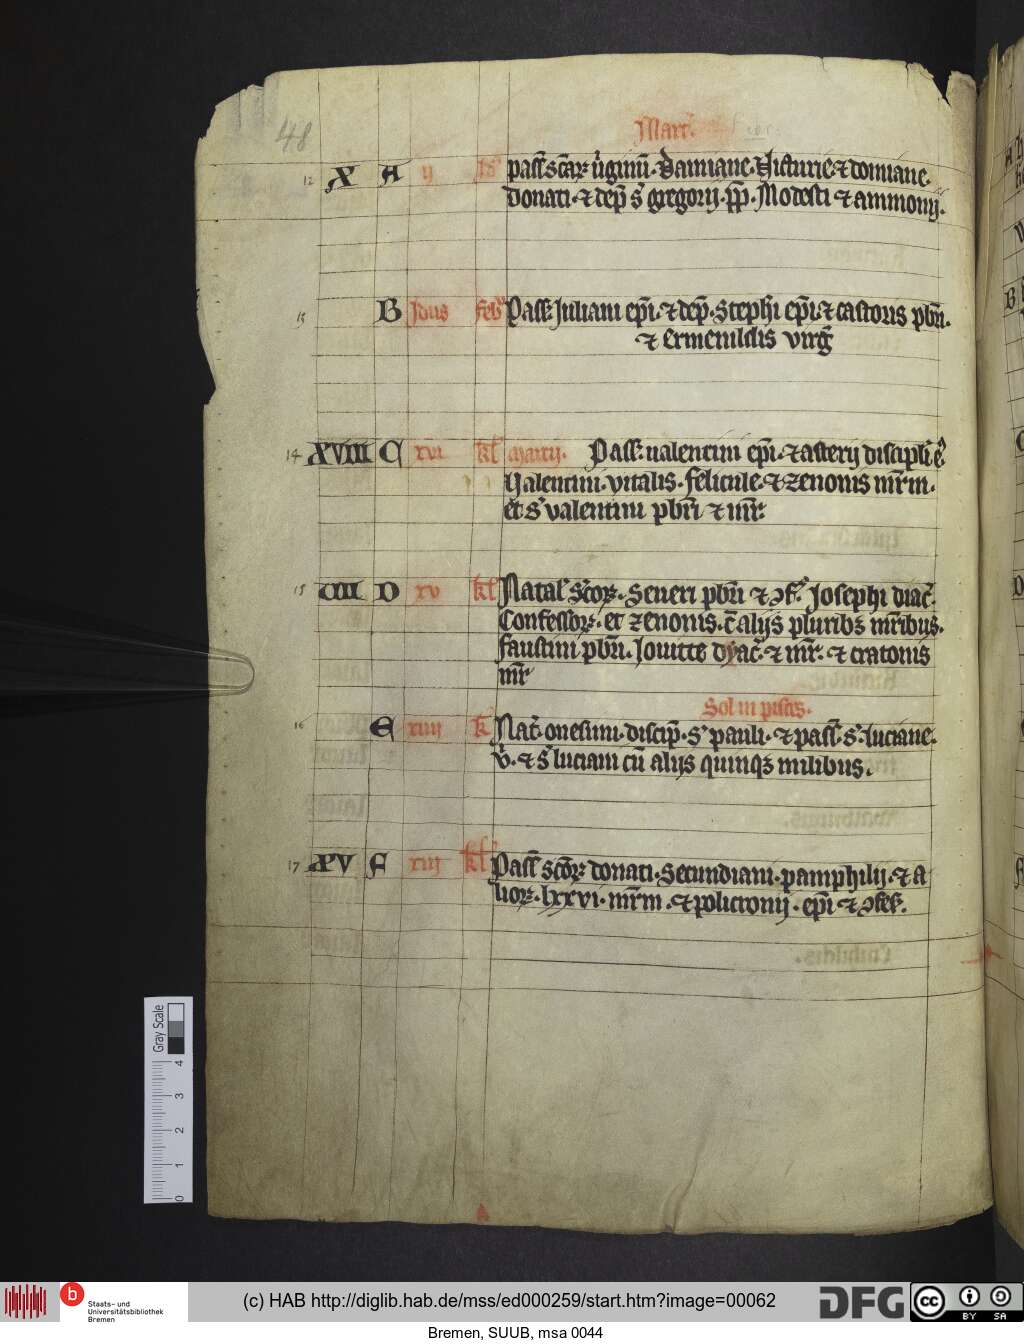 48
Marc̃.
12 X A ij Id᷒ pass̃ sc̃ar̃ ũginũ. Damiane. Victurie. ⁊ domiane.
Donati. ⁊ dep̃ s̃ gregorij. pp̃. Modesti ⁊ ammonij.
13 B Idus Feb̃ Pass̃ Juliani ep̃i. ⁊ dep̃. Stephi ep̃i. ⁊ castoris pbr̃i.
⁊ Ermenildis virg̃
14 XVIII C xvi kl̃ marcij. Pass̃. ualentini ep̃i. ⁊ asterij discipl̃i eꝰ.
Valentini. vitalis. felicule. ⁊ zenonis mr̃m.
et s̃ valentini pbr̃i ⁊ mr̃
15 VII D xv kl̃ Natal̃ sc̃or̃. Seueri pbr̃i ⁊ ɔf̃. Josephi diac̃.
Confessor̃. et zenonis. c̃ alijs pluribꝫ mr̃ibus.
faustini pbr̃i. Jouitte dyac̃. ⁊ mr̃. ⁊ cratonis
mr̃
Sol in pisces.
16 E xiiij k̃ Nat̃. onesimi. discip̃. s̃ pauli. ⁊ pass̃. s̃. luciane.
ṽ. ⁊ s̃ luciani cũ alijs quinqꝫ milibus.
17 XV F xiij kl̃ Pass̃ sc̃or̃ donati. Secundiani. pamphilij. ⁊ a
lior̃. lxxvi. mr̃m. ⁊ policronij. ep̃i ⁊ ɔfes̃.
Gray Scale
0 1 2 3 4
b Staats- und
Universitätsbibliothek
Bremen
(c) HAB http://diglib.hab.de/mss/ed000259/start.htm?image=00062
DFG
cc BY SA
Bremen, SUUB, msa 0044